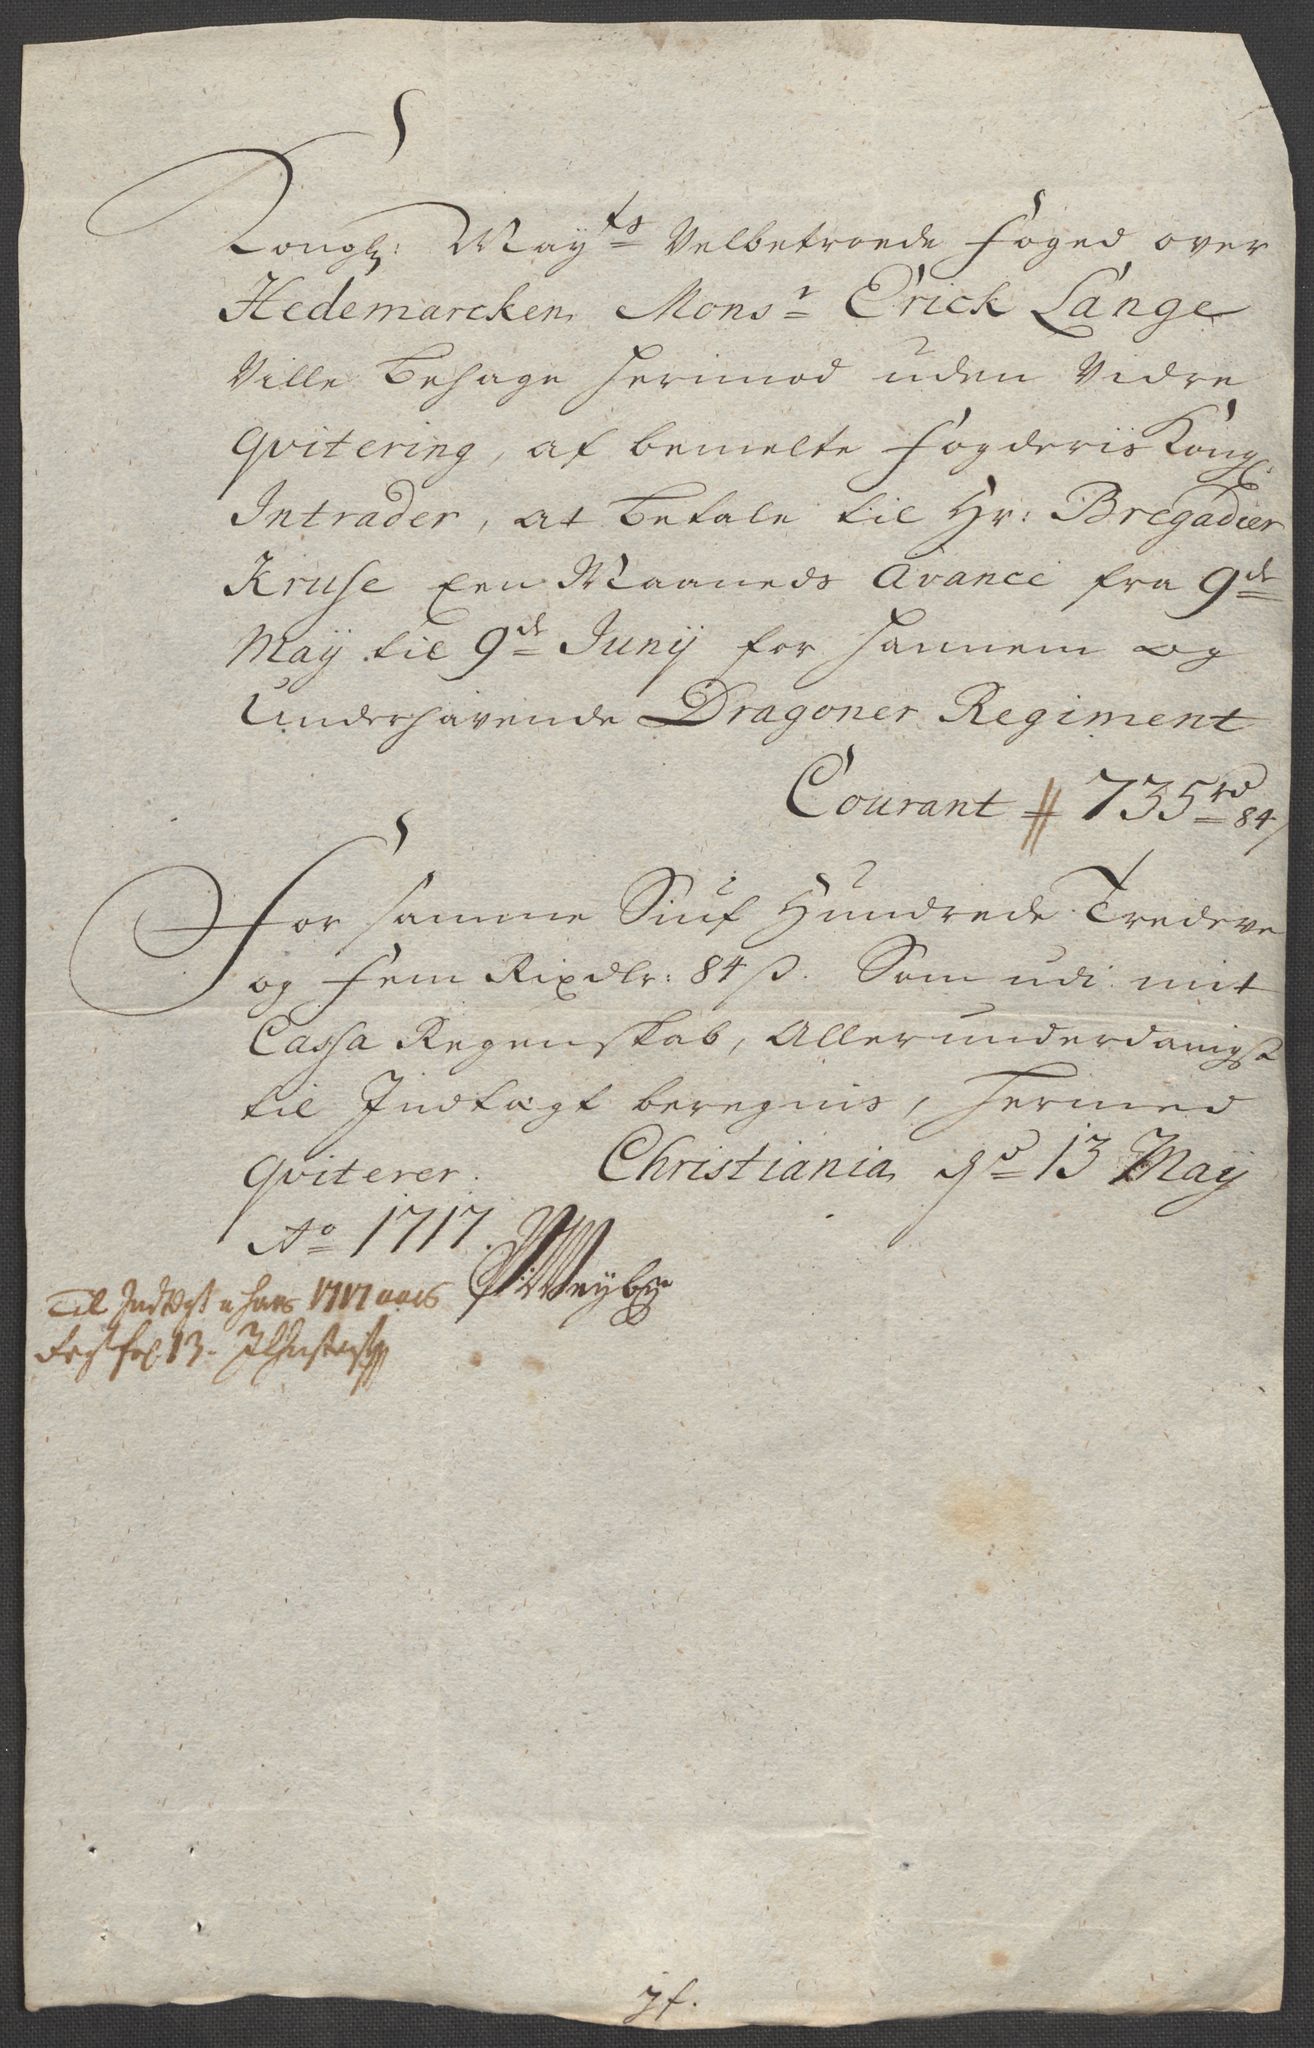 Kongl: May<sup>ts</sup> Velbetroede Foged over
Hedemarcken Mons<sup>r</sup> Erick Lange
Ville behage herimod uden Vidre
Qvitering, af bemelte Fogderis Kongl
Intrader, at betale til Hr: Bregadier
Kruse Een Maaneds Avance fra 9<sup>de</sup>
Maÿ til 9<sup>de</sup> Junÿ for hannem og
Underhavende Dragoner Regiment
Courant # 735<sup>rd</sup> 84
For samme Siuf Hundrede Tredeve
og Fem Rixdlr: 84 ß. Som udi mit
Cassa Regenskab, Allerunderdanigst
til Indtægt beregnis, hermed
Qviterer. Christiania d 13 Maÿ
A<sup>o</sup> 1717.
Til Indtegt u hans 1717 aars
fol 13.